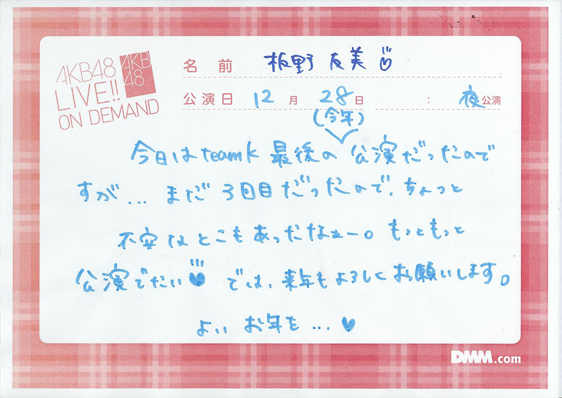 AKB48
LIVE!!
ON DEMAND
AKB
48
名前 板野友美
公演日 12月28日 : 夜公演
(今年)
今日はteamk 最後の公演だったので
すが... まだ3回目だったので、ちょっと
不安なとこもあったなぁー。もっともっと
公演でたい♥ では、来年もよろしくお願いします。
よいお年を...♥
DMM.com